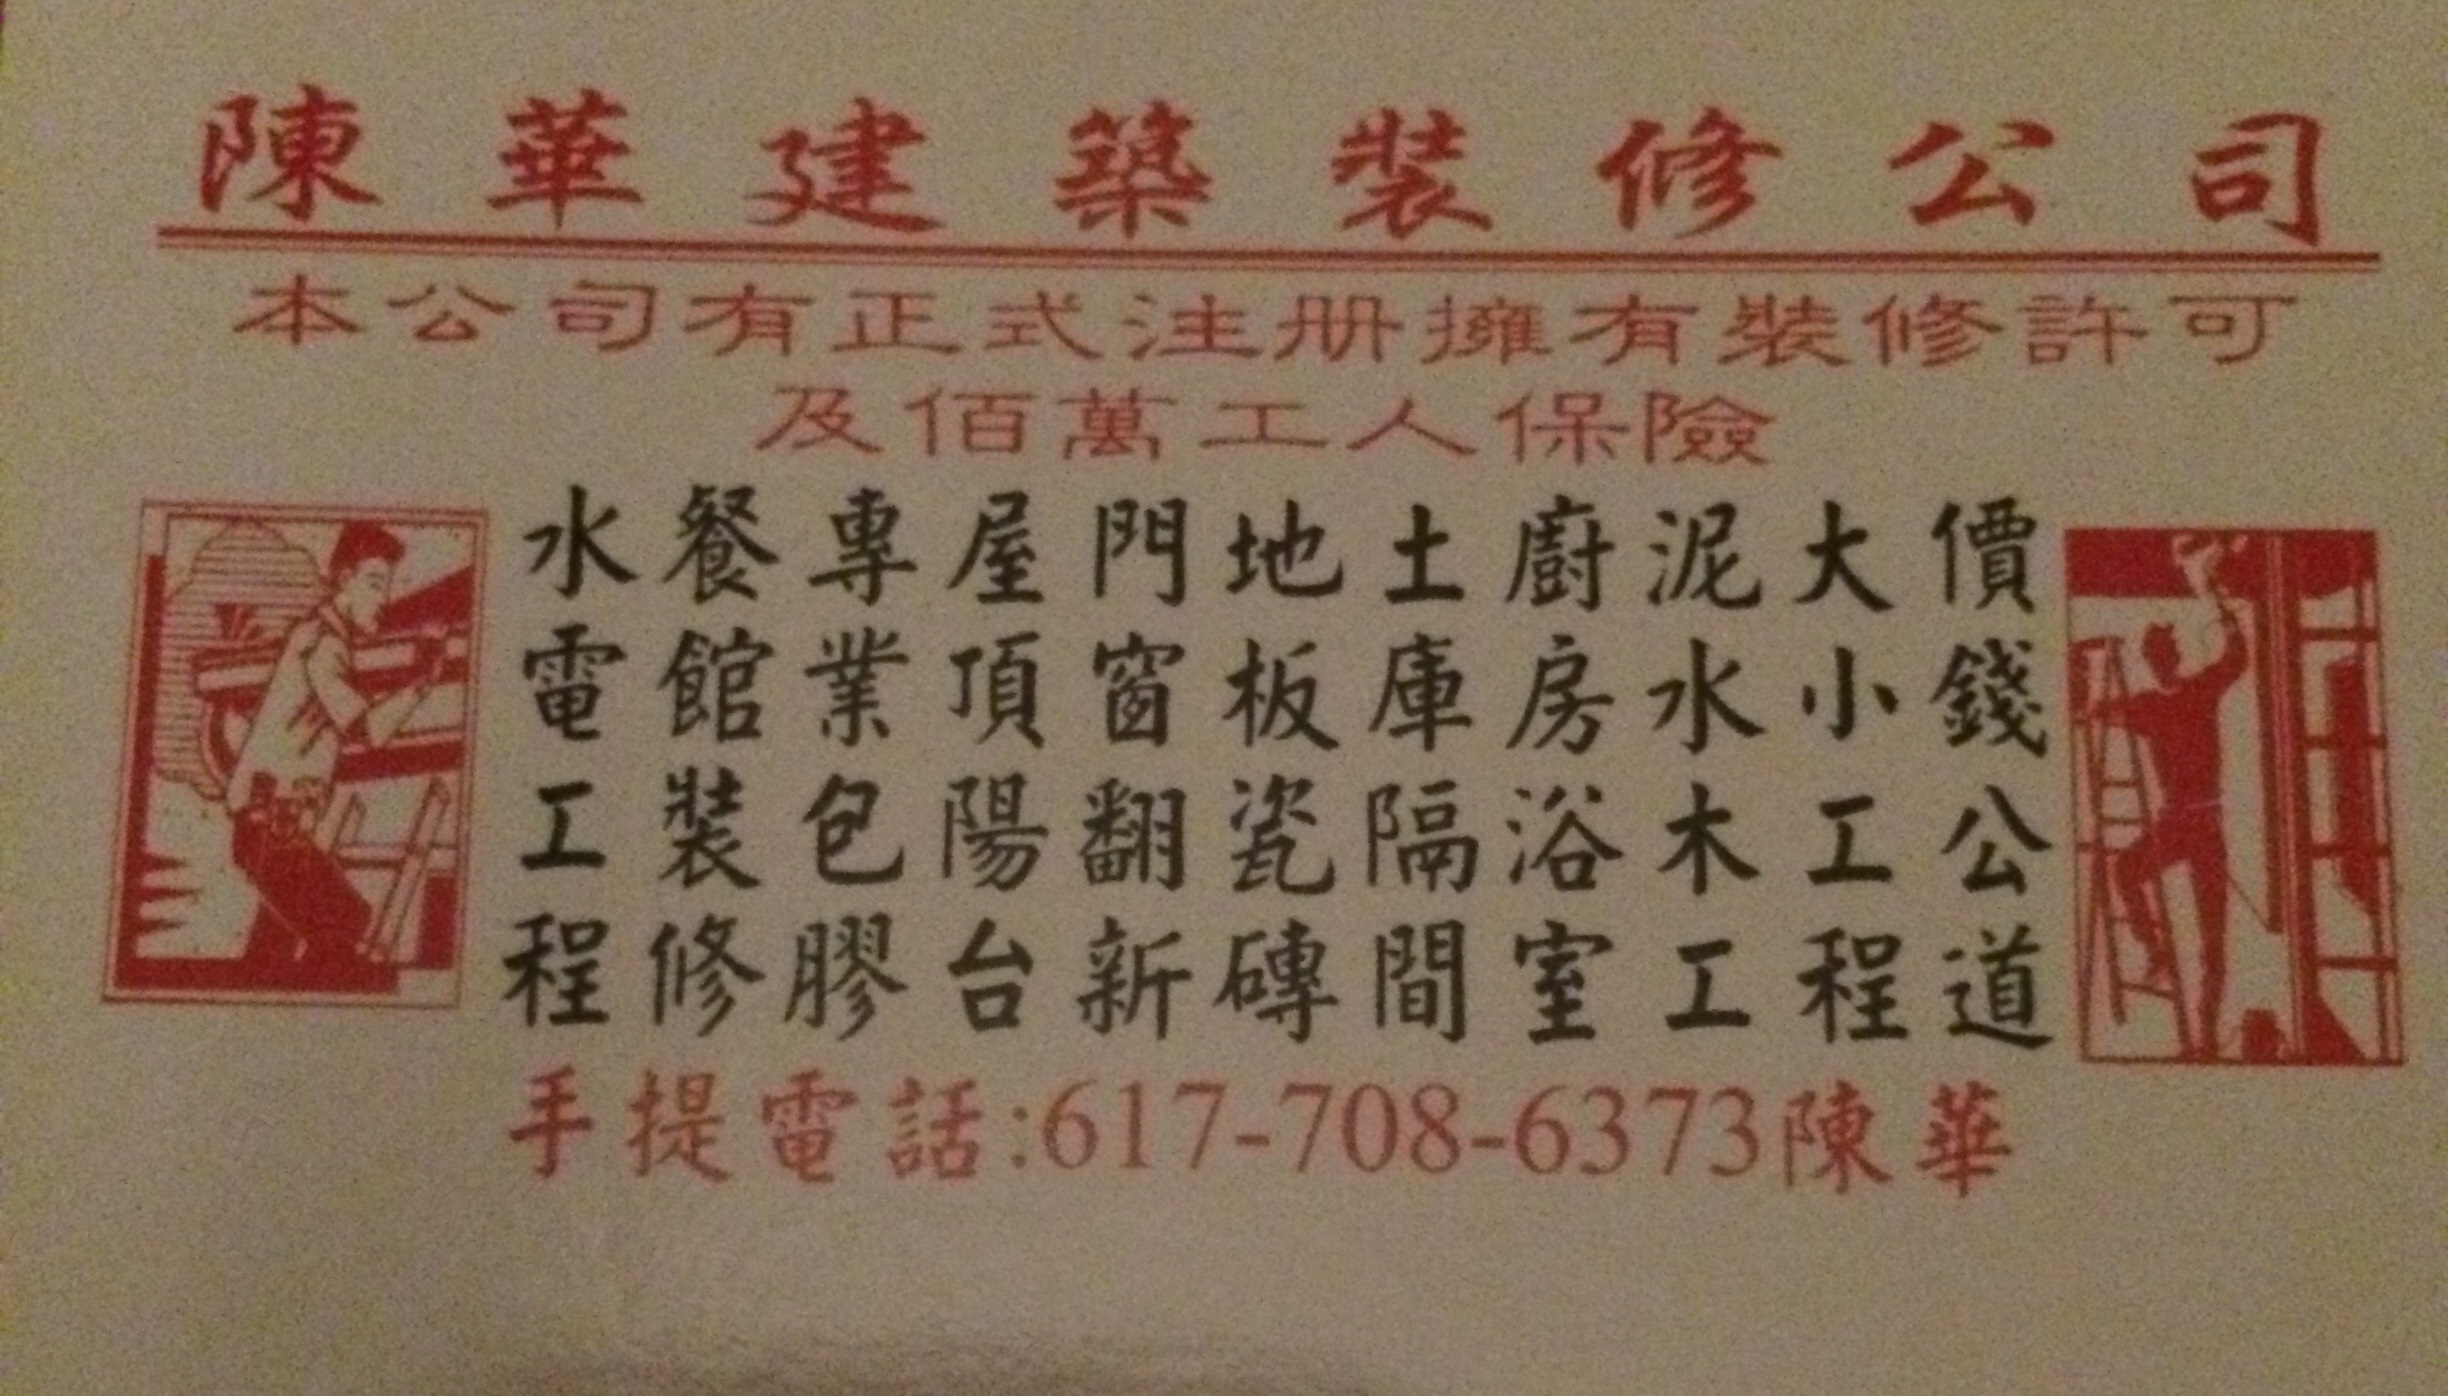 陳華建築裝修公司
本公司有正式注册擁有裝修許可
及佰萬工人保險
價錢公道
大小工程
泥水木工
廚房浴室
土庫隔間
地板瓷磚
門窗翻新
屋頂陽台
專業包膠
餐館裝修
水電工程
手提電話:617-708-6373陳華